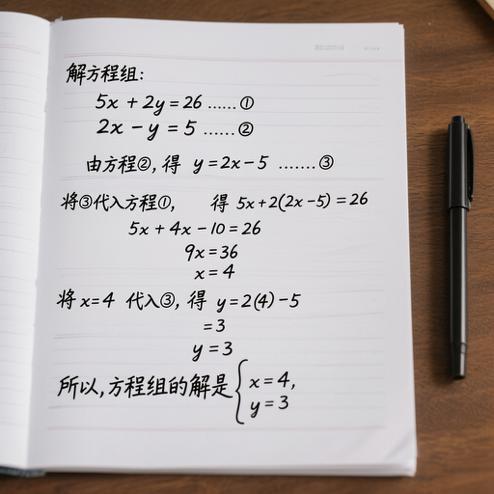 解方程组:
5x + 2y = 26 ...... ①
2x − y = 5 ...... ②
由方程②, 得 y = 2x − 5 ....... ③
将③代入方程①, 得 5x + 2(2x − 5) = 26
5x + 4x − 10 = 26
9x = 36
x = 4
将 x = 4 代入③, 得 y = 2(4) − 5
= 3
y = 3
所以, 方程组的解是 { x = 4,
y = 3